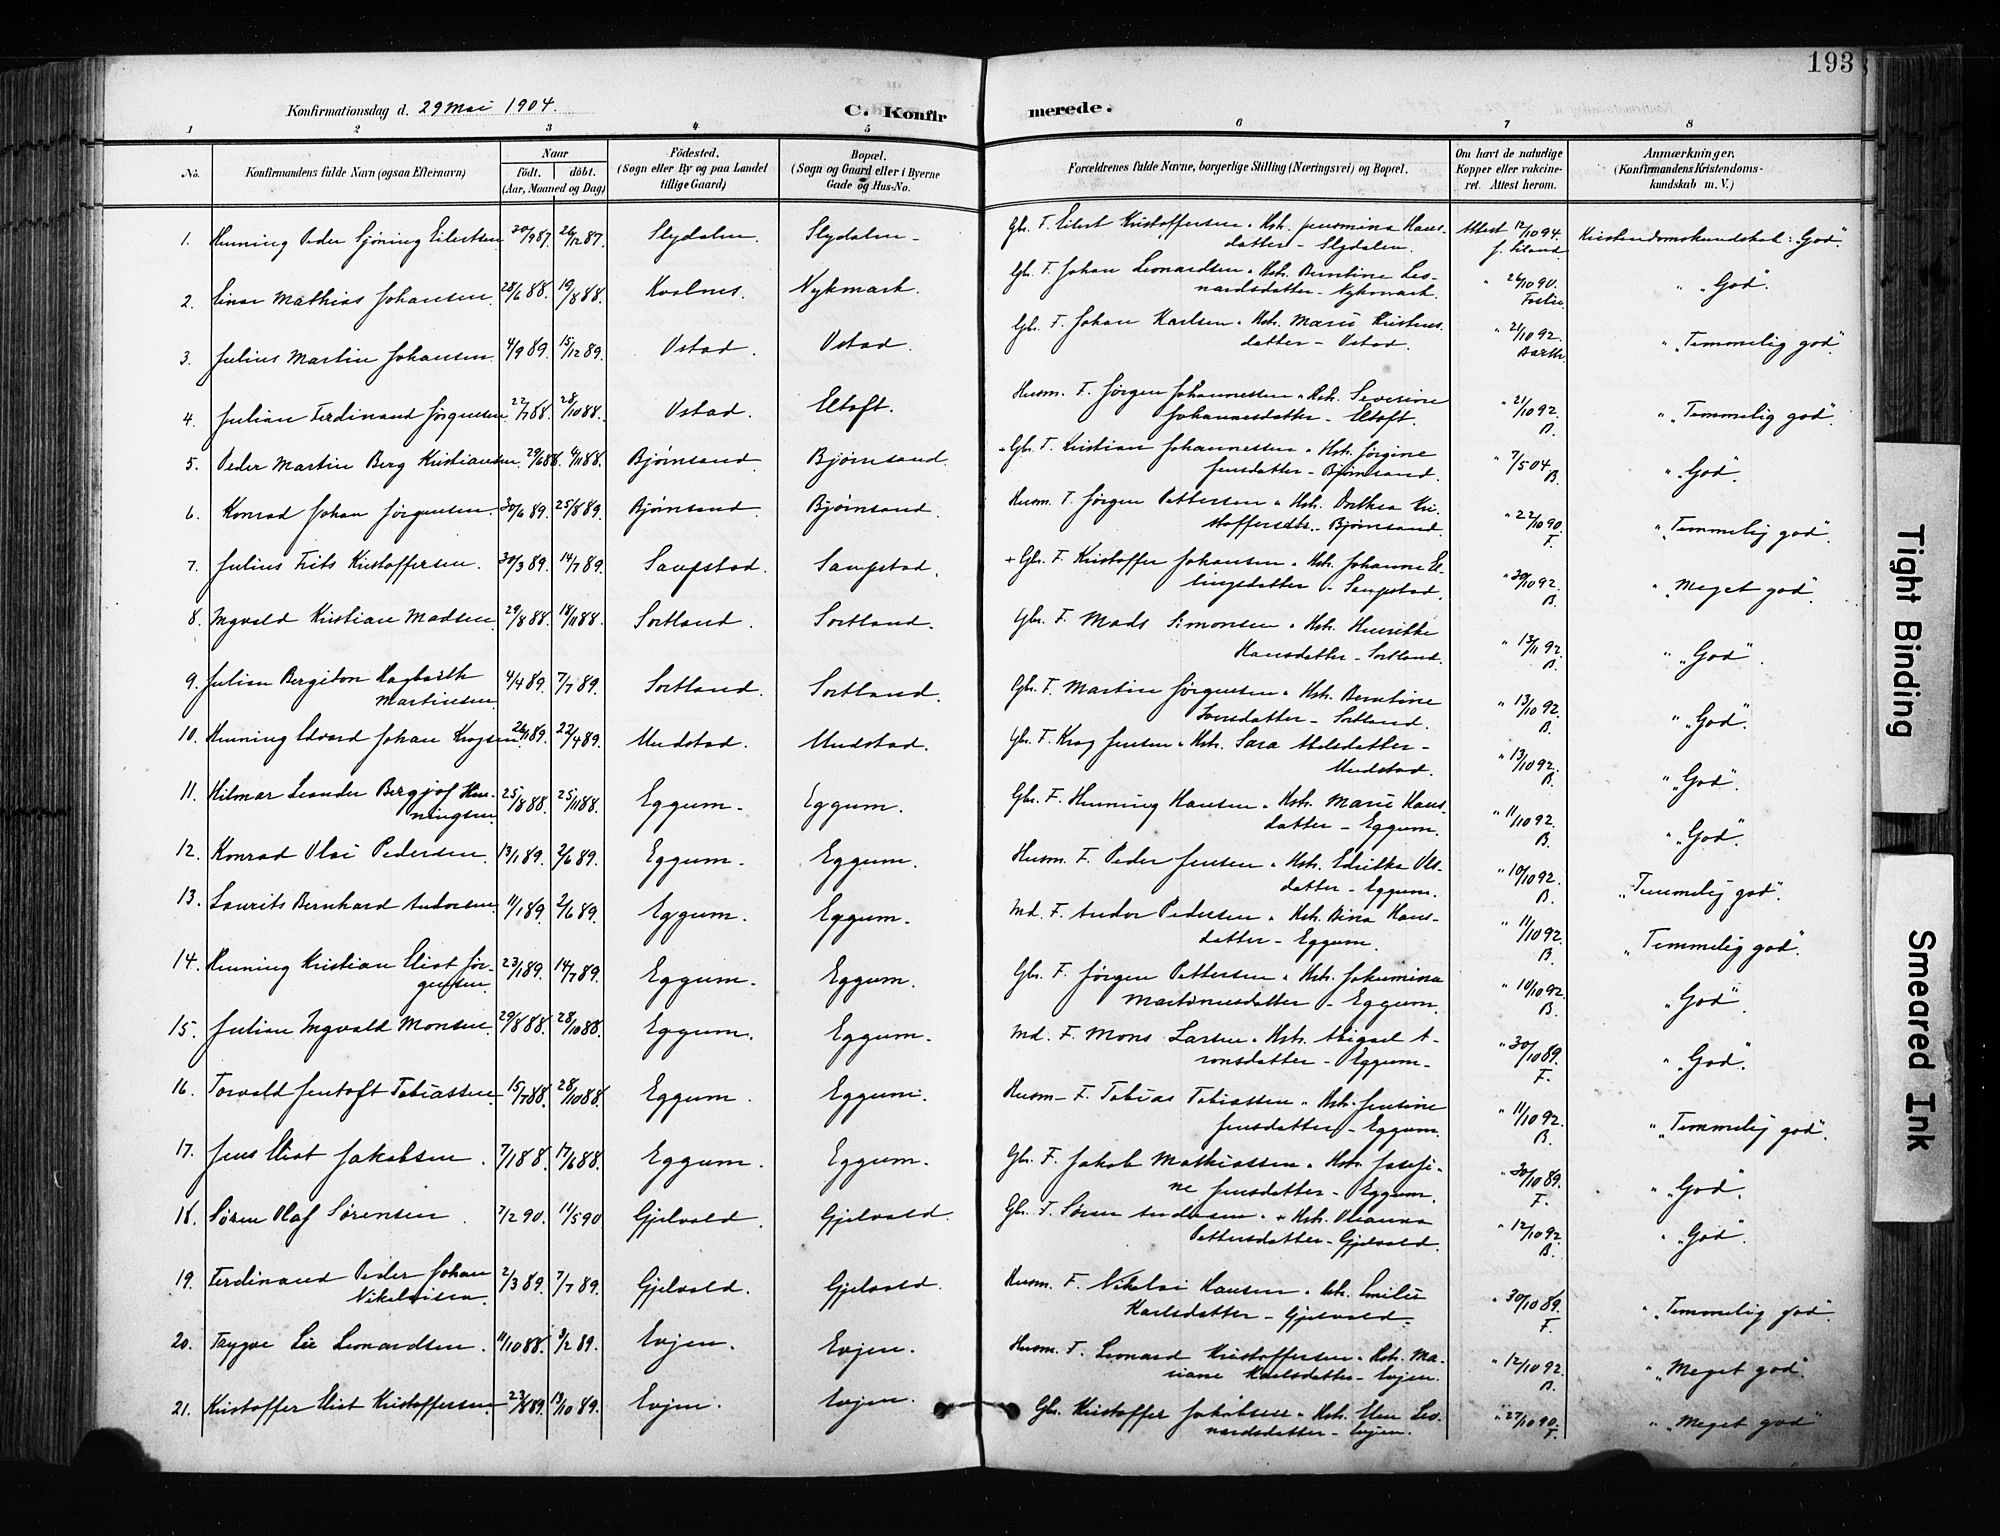 193
Konfirmationsdag d. 29 Mai 1904.
C. Konfirmerede.
1 2 3 4 5 6 7 8
No. Konfirmandens fulde Navn (ogsaa Efternavn) Naar födt. döbt. (Aar, Maaned og Dag) Födested. (Sogn eller By og paa Landet tillige Gaard) Bopæl. (Sogn og Gaard eller i Byerne Gade og Hus-No. Forældrenes fulde Navne, borgerlige Stilling (Næringsvei) og Bopæl. Om havt de naturlige Kopper eller vakcineret. Attest herom. Anmærkninger. (Konfirmandens Kristendomskundskab m. V.)
1. Henning Peder Sjøning Eilertsen 20/9 87. 26/12 87. Slydalen. Slydalen Gbr. F. Eilert Kristoffersen Hst. Jensmina Hansdatter - Slydalen. Attest 12/10 94. Kristendomskundskab: "God".
2. Einar Mathias Johansen 28/6 88. 19/8 88. Kvalnes. Nykmark. Gbr. F. Johan Leonardsen Hst. Berntine Leonardsdatter - Nykmark. " 26/10 90. " "God".
3. Julius Martin Johansen 4/9 89. 15/12 89. Ustad. Ustad. Gbr. F. Johan Karlsen Hst. Marie datter - Ustad. " 21/10 92. " "Temmelig god".
4. Julian Ferdinand Jørgensen 22/7 88. 28/10 88. Ustad. Eltoft. Husm. F. Jørgen Johannessen Hst. Severine Johannesdatter - Eltoft. " 21/10 92. B. " "Temmelig god".
5. Peder Martin Berg Kristiansen 29/6 88. 4/11 88. Bjørnsand. Bjørnsand. Gbr. F. Kristian Johannessen Hst. Jørgine Jensdatter - Bjørnsand. " 7/5 04. B. " "God".
6. Konrad Johan Jørgensen. 30/6 89. 25/8 89. Bjørnsand. Bjørnsand. Husm. F. Jørgen Pettersen Hst. Dorthea Kristoffersdtr. - Bjørnsand. " 22/10 90. F. " "Temmelig god".
7. Julius Frits Kristoffersen. 30/3 89. 14/7 89. Saupstad. Saupstad. + Gbr. F. Kristoffer Johansen Hst. Johanne Elingsdatter - Saupstad. " 30/10 92. B. " "Meget god".
8. Ingvald Kristian Madsen. 29/8 88. 18/11 88. Sortland. Sortland. Gbr. F. Mads Simonsen Hst. Henrikke Hansdatter - Sortland. " 13/11 92. B. " "God".
9. Julian Bergiton Hagbarth Martinsen 4/4 89. 7/7 89. Sortland. Sortland. Gbr. F. Martin Jørgensen Hst. Berntine datter - Sortland. " 13/10 92. B. " "God".
10. Henning Edvard Johan Krogsen 22/4 89. Mudstad. Mudstad. Gbr. F. Krog Jensen Hst. Sara Abelsdatter - Mudstad. " 13/10 92. B. " "God".
11. Hilmar Leander Bergjof Henningsen 25/8 88. 25/11 88. Eggum. Eggum. Gbr. F. Henning Hansen Hst. Marie Hansdatter - Eggum. " 11/10 92. B. " "God".
12. Konrad Olai Pedersen 13/1 89. 2/6 89. Eggum. Eggum. Husm. F. Peder Jensen Hst. Edrikka Olsdatter - Eggum. " 10/10 92. B. "Temmelig god".
13. Laurits Bernhard Andorsen 11/1 89. 2/6 89. Eggum. Eggum. Md. F. Andor Pedersen Hst. Hansdatter - Eggum. " 11/10 92. B. "Temmelig god".
14. Henning Kristian Elist Jørgensen. 23/1 89. 14/7 89. Eggum. Eggum. Gbr. F. Jørgen Pettersen Hst. Jakumina Martinusdatter - Eggum. " 10/10 92. B. "God".
15. Julian Ingvald Monsen 29/8 88. 28/10 88. Eggum. Eggum. Md. F. Mons Larsen Hst. Abigael Aronsdatter - Eggum. " 30/10 89. F. " "God".
16. Torvald Jentoft Tobiassen 15/7 88. 28/10 88. Eggum. Eggum. Husm. F. Tobias Tobiassen Hst. Jensine Jensdatter - Eggum. " 11/10 92. B. " "Temmelig god".
17. Jens Elist Jakobsen. 7/1 88. 17/6 88. Eggum. Eggum. Gbr. F. Jakob Mathiassen Hst. Josefine Jensdatter - Eggum. " 30/10 89. F. " "God".
18. Søren Olaf Sørensen. 7/2 90. 11/5 90 Gjelvold. Gjelvold. Gbr. F. Søren Andersen Hst. Oleanna Pettersdatter - Gjelvold. " 12/10 92. B. " "God".
19. Ferdinand Peder Johan Nikolaisen. 2/3 89. 7/7 89. Gjelvold. Gjelvold. Husm. F. Nikolai Hansen Hst. Emilie Karlsdatter - Gjelvold. " 30/10 89. F. " "Temmelig god".
20. Trygve Lie Leonardsen. 11/10 88. 3/2 89. Evjen. Evjen. Husm. F. Leonard Kristoffersen Hst. Mariane Karlsdatter - Evjen. " 12/10 92. B. " "Meget god".
21. Kristoffer Elist Kristoffersen. 23/8 89. 13/10 89. Evjen. Evjen. Gbr. Kristoffer Jakobsen Hst. Elen Leonardsdatter - Evjen. " 27/10 90. F. " "Meget god"
Tight Binding
Smeared Ink